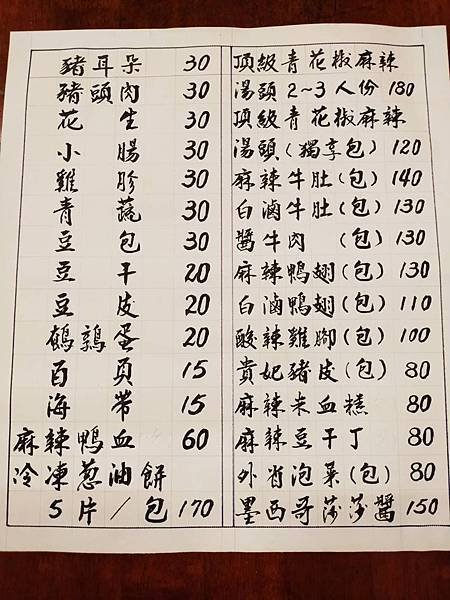 豬耳朵 30
豬頭肉 30
花生 30
小腸 30
雞胗 30
青蔬 30
豆包 30
豆干 20
豆皮 20
鵪鶉蛋 20
百頁 15
海帶 15
麻辣鴨血 60
冷凍蔥油餅
5片/包 170
頂級青花椒麻辣
湯頭2~3人份 180
頂級青花椒麻辣
湯頭(獨享包) 120
麻辣牛肚(包) 140
白滷牛肚(包) 130
醬牛肉(包) 130
麻辣鴨翅(包) 130
白滷鴨翅(包) 110
酸辣雞腳(包) 100
貴妃豬皮(包) 80
麻辣米血糕 80
麻辣豆干丁 80
外省泡菜(包) 80
墨西哥莎莎醬 150